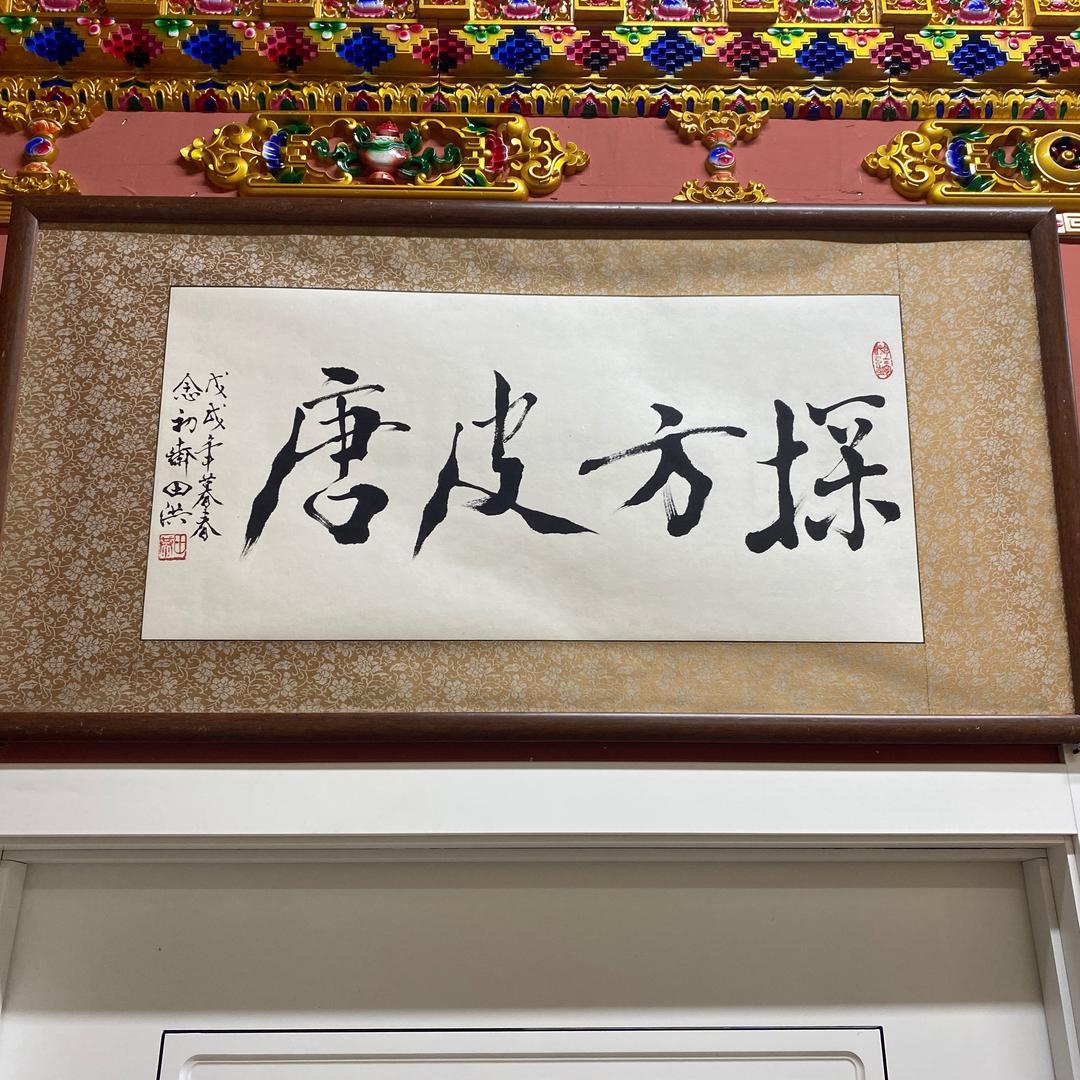 探方皮唐
戊戌年暮春
念初斋田洪